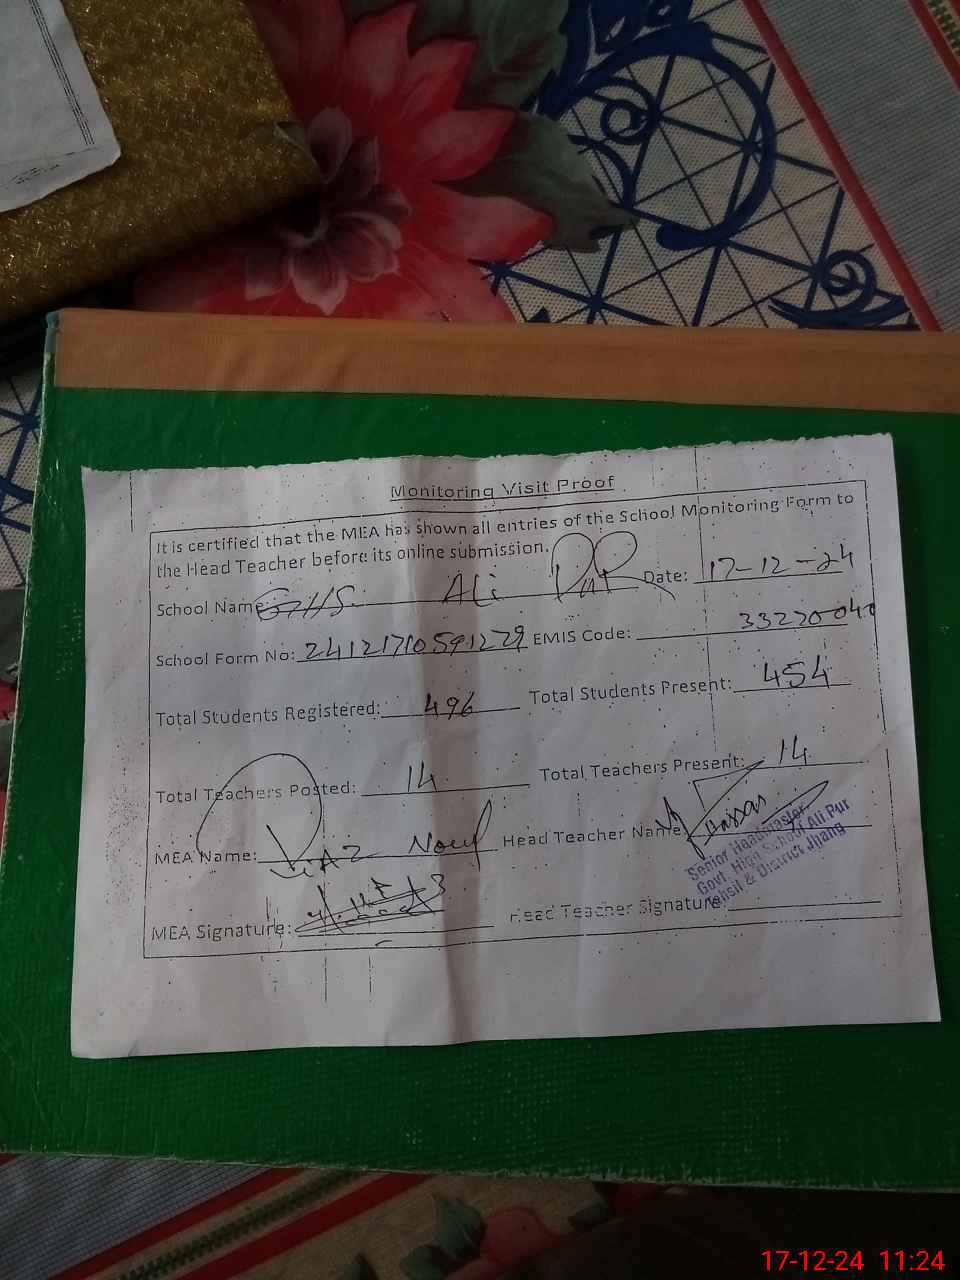 Monitoring Visit Proof
It is certified that the MEA has shown all entries of the School Monitoring Form to
the Head Teacher before its online submission.
School Name: GHS Ali Pur Date: 17-12-24
School Form No: 24121710591279 EMIS Code: 33220040
Total Students Registered: 496 Total Students Present: 454
Total Teachers Posted: 14 Total Teachers Present: 14
MEA Name: Head Teacher Name:
Senior Headmaster
Govt. High School Ali Pur
Tehsil & District Jhang
MEA Signature: Head Teacher Signature:
17-12-24 11:24